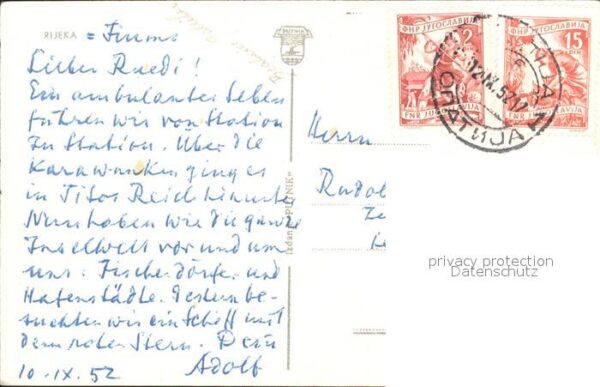 RIJEKA = Fiume
Lieber Ruedi!
Ein ambulantes Leben
führen wir von Station
zu Station. Über die
Karawanken ging es
in Titos Reich hinunter
Nun haben wir die ganze
Inselwelt vor und um
uns: Fischerdörfer und
Hafenstädte. Gestern be-
suchten wir ein Schiff mit
dem roten Stern. Dein
Adolf
10. IX. 52
PUTNIK
Izdanje »PUTNIK«
Herrn
Rudol
Ze
FNR JUGOSLAVIJA
2
ФНР ЈУГОСЛАВИЈА
FNR JUGOSLAVIJA
15
DIN
ОПАТИЈА
OPATIJA
12 IX 52 17
privacy protection
Datenschutz